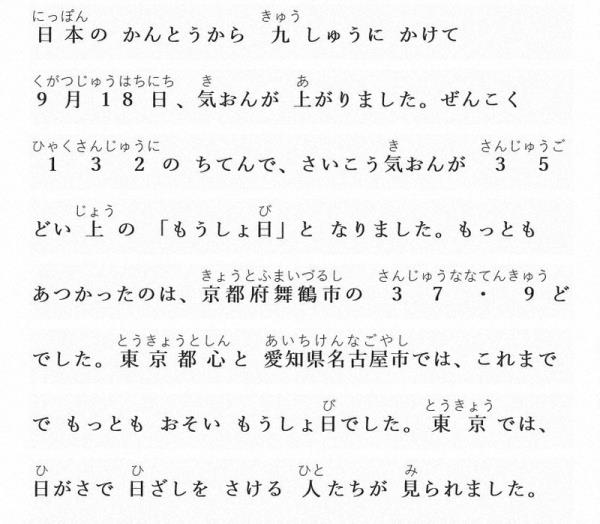 にっぽん きゅう
日本の かんとうから 九しゅうに かけて
くがつじゅうはちにち き あ
9月18日、気おんが 上がりました。ぜんこく
ひゃくさんじゅうに き さんじゅうご
132の ちてんで、さいこう気おんが 35
じょう び
どい上の 「もうしょ日」と なりました。もっとも
きょうとふまいづるし さんじゅうななてんきゅう
あつかったのは、京都府舞鶴市の 37・9ど
とうきょうとしん あいちけんなごやし
でした。東京都心と 愛知県名古屋市では、これまで
び とうきょう
で もっとも おそい もうしょ日でした。東京では、
ひ ひ ひと み
日がさで 日ざしを さける 人たちが 見られました。